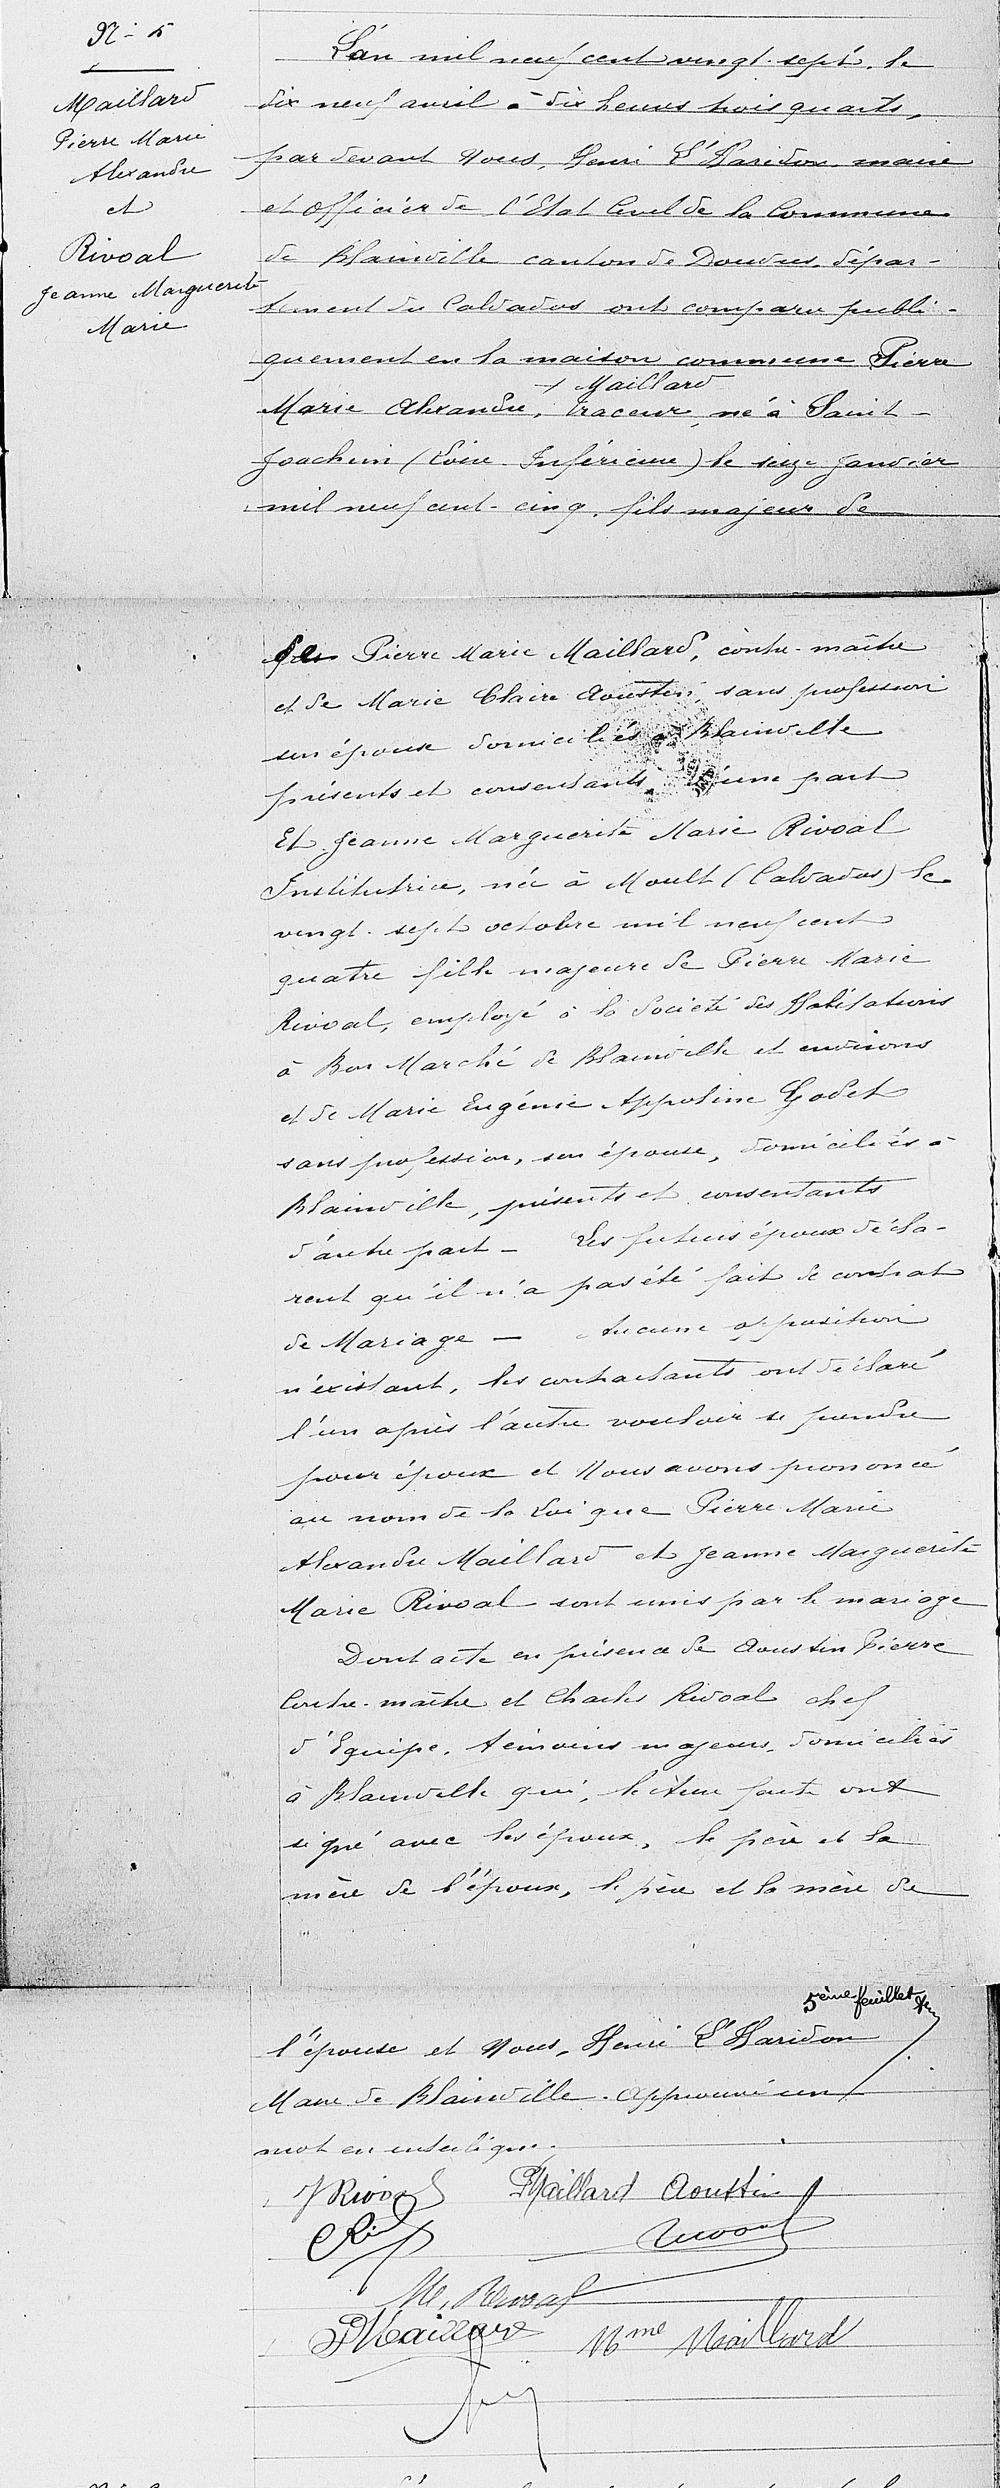 N° 5
Maillard
Pierre Marie
Alexandre
et
Rivoal
Jeanne Marguerite
Marie
L'an mil neuf cent vingt-sept, le
dix neuf avril à dix heures trois quarts,
par devant Nous, Henri L'Haridon, maire
et Officier de l'Etat Civil de la Commune
de Blainville canton de Douvres, dépar-
tement du Calvados ont comparu publi-
quement en la maison commune Pierre
+ Maillard
Marie Alexandre, traceur, né à Saint-
Joachim (Loire-Inférieure) le seize Janvier
mil neuf cent-cinq, fils majeur de
de Pierre Marie Maillard, contre-maître
et de Marie Claire Aoustin, sans profession
son épouse domiciliés à Blainville
présents et consentants, d'une part
Et Jeanne Marguerite Marie Rivoal
Institutrice, née à Moult (Calvados) le
vingt-sept octobre mil neuf cent
quatre fille majeure de Pierre Marie
Rivoal, employé à la Société des Habitations
à Bon Marché de Blainville et environs
et de Marie Eugénie Appoline Godet
sans profession, son épouse, domiciliés à
Blainville, présents et consentants
d'autre part - Les futurs époux décla-
rent qu'il n'a pas été fait de contrat
de Mariage - Aucune opposition
n'existant, les contractants ont déclaré
l'un après l'autre vouloir se prendre
pour époux et Nous avons prononcé
au nom de la Loi que Pierre Marie
Alexandre Maillard et Jeanne Marguerite
Marie Rivoal sont unis par le mariage
Dont acte en présence de Aoustin Pierre
Contre-maître et Charles Rivoal chef
d'Equipe, témoins majeurs, domiciliés
à Blainville qui, lecture faite ont
signé avec les époux, le père et la
mère de l'époux, le père et la mère de
5ème feuillet
l'épouse et Nous, Henri L'Haridon
Maire de Blainville. Approuvé un
mot en interligne.
J Rivoal PMaillard Aoustin
CRiv Rivoal
M. Rivoal
PMaillard Mme Maillard